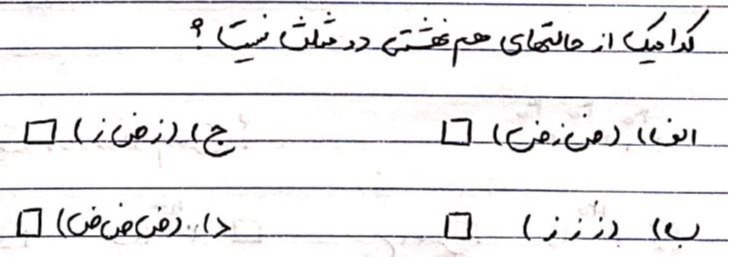 کدامیک از حالتهای هم نهشتی دو مثلث نیست؟
الف) (ض ز ض) □ ج) (ز ض ز) □
ب) (ز ز ز) □ د) (ض ض ض) □